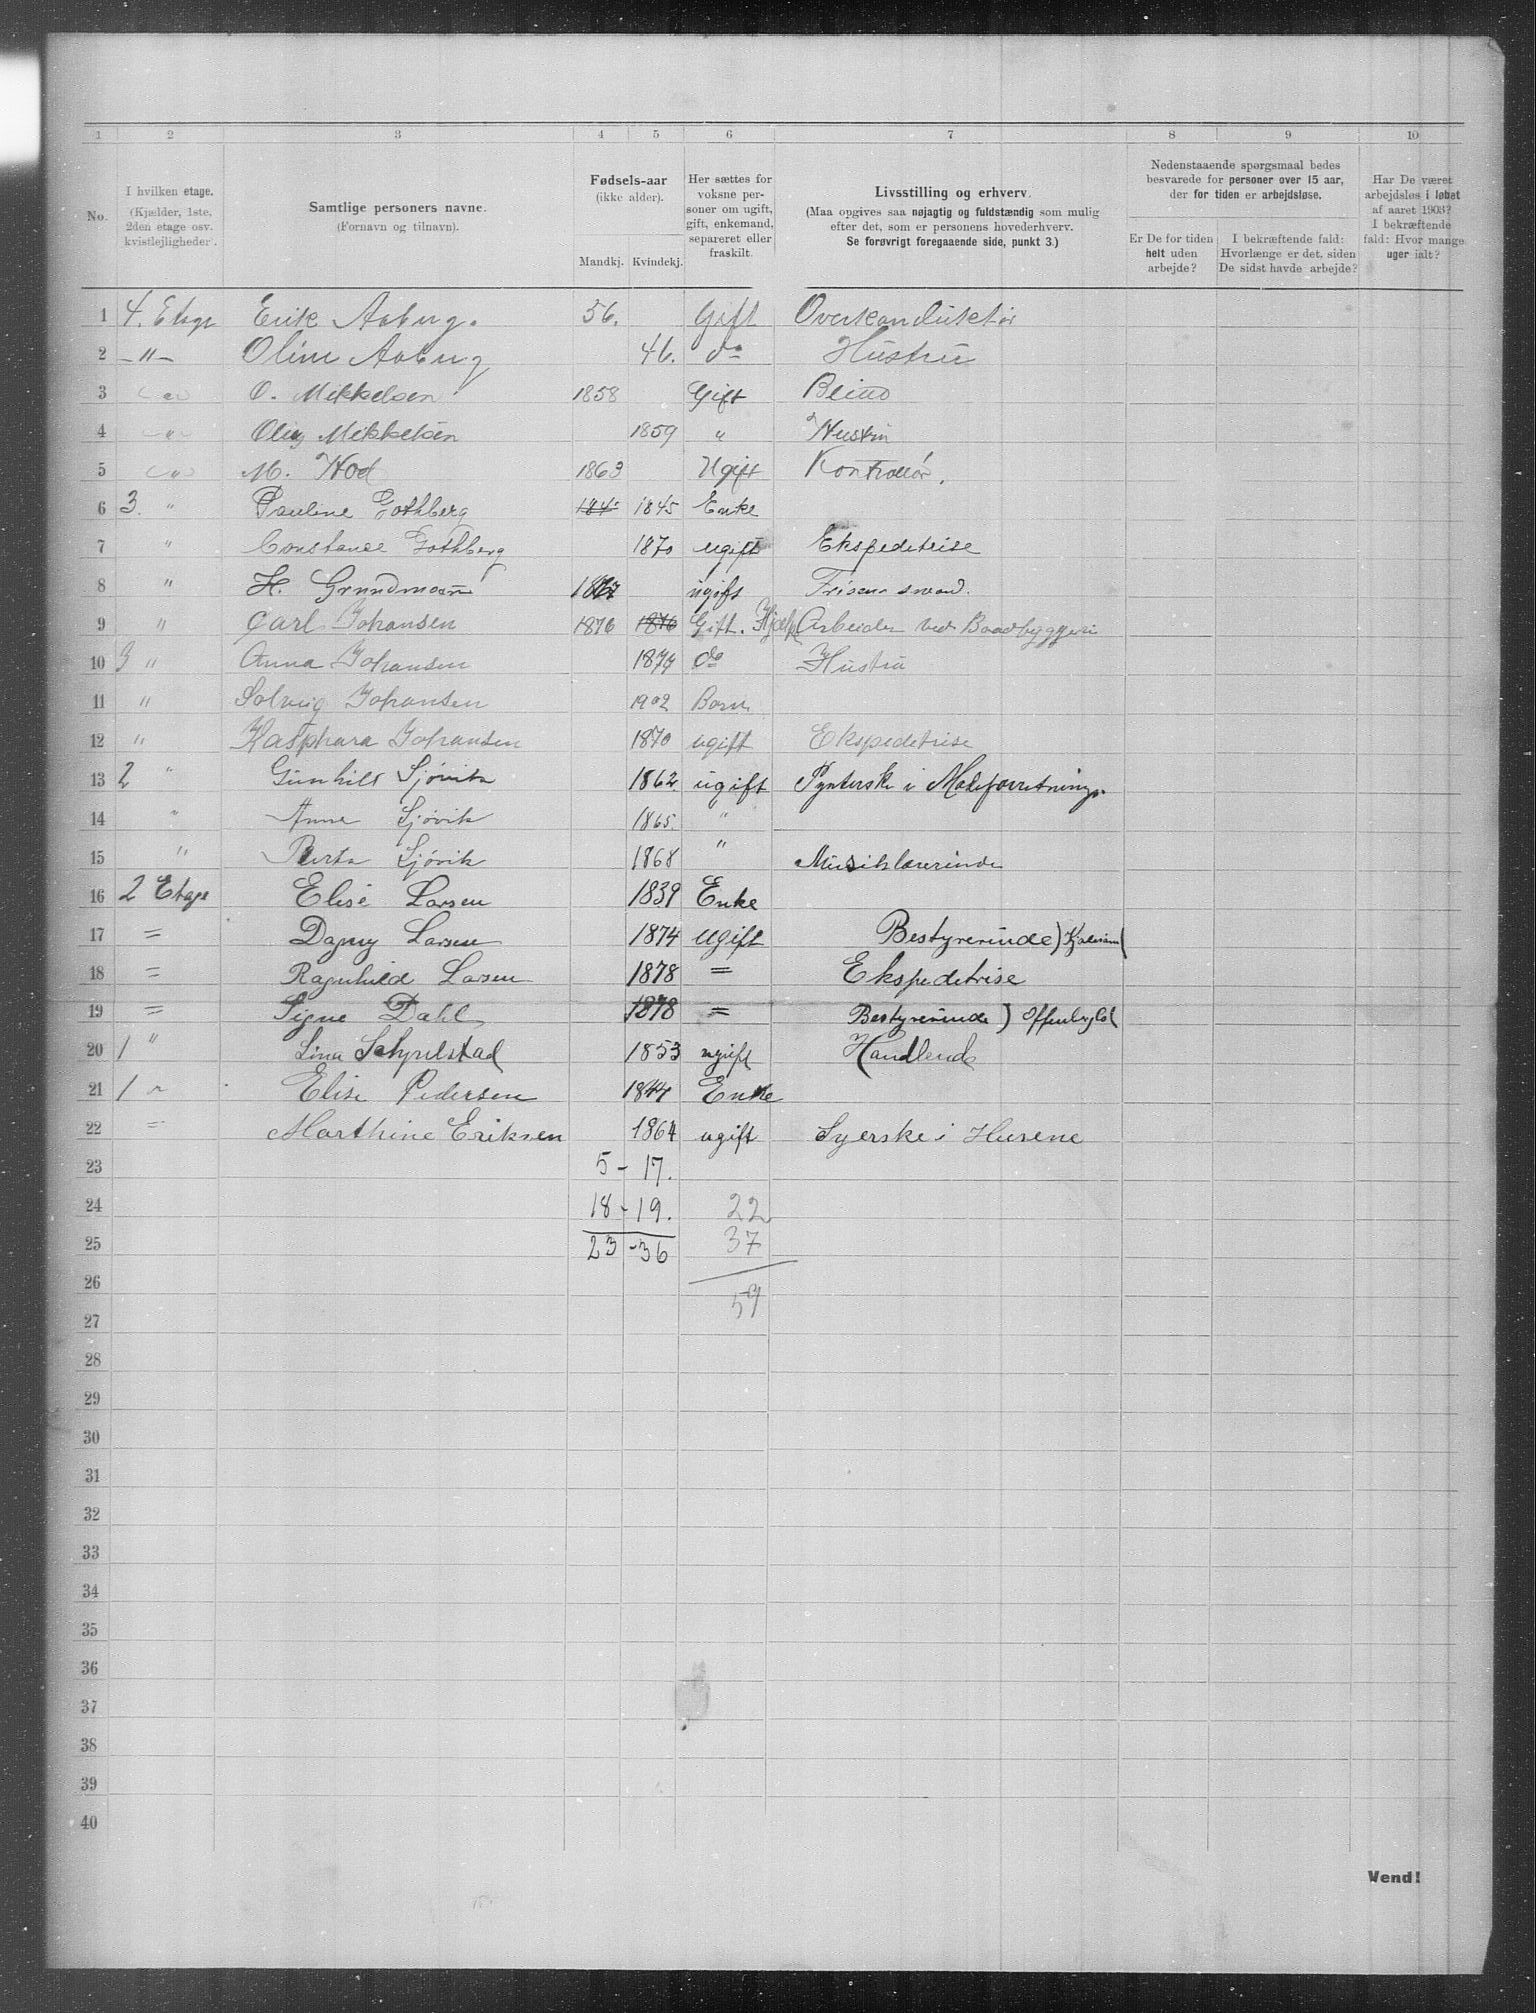 1 2 3 4 5 6 7 8 9 10
No.
I hvilken etage.
(Kjælder, 1ste,
2den etage osv.
kvistlejligheder.
Samtlige personers navne.
(Fornavn og tilnavn).
Fødsels-aar
(ikke alder).
Mandkj. Kvindekj.
Her sættes for
voksne per-
soner om ugift,
gift, enkemand,
separeret eller
fraskilt.
Livsstilling og erhverv.
(Maa opgives saa nøjagtig og fuldstændig som mulig
efter det, som er personens hovederhverv.
Se forøvrigt foregaaende side, punkt 3.)
Nedenstaaende spørgsmaal bedes
besvarede for personer over 15 aar,
der for tiden er arbejdsløse.
Er De for tiden
helt uden
arbejde?
I bekræftende fald:
Hvorlænge er det, siden
De sidst havde arbejde?
Har De været
arbejdsløs i løbet
af aaret 1903?
I bekræftende
fald: Hvor mange
uger ialt?
1 4. Etage Erik Aaberg. 56. Gift Overkonduktør
2 –"– Oline Aaberg 46. do Hustru
3 O. Mikkelsen 1858 Gift
4 Mikkelsen 1859 " Hustru
5 M. 1863 Ugift Kontrollør.
6 3. " Pauline Gothberg 1845 1845 Enke
7 " Constance Gothberg 1870 ugift Ekspeditrise
8 " H. Grundmann ugift
9 " Carl Johansen 1876 1876 Gift. Hjælpe Arbeider ved Baadbyggeri
10 3 " Anna Johansen 1874 do Hustru
11 " Solveig Johansen 1902 Barn
12 " Kasphara Johansen 1870 ugift Ekspeditrise
13 2 " Gunhild Sjøvik 1862 ugift Pynterske i Moteforretning.
14 " Anna Sjøvik 1865. "
15 " Berta Sjøvik 1868 " Musiklærerinde
16 2 Etage Elise Larsen 1839 Enke
17 = Dagny Larsen 1874 ugift Bestyrerinde)
18 = Ragnhild Larsen 1878 = Ekspedetrise
19 = Signe Dahl 1878 = Bestyrerinde)
20 1 " Lina 1853 ugift Handlende
21 1 " Elise Pedersen 1844 Enke
22 = Marthine Eriksen 1864 ugift Syerske i Husene
23 5 – 17.
24 18 – 19. 22
25 23 – 36 37
26
27 59
28
29
30
31
32
33
34
35
36
37
38
39
40
Vend!